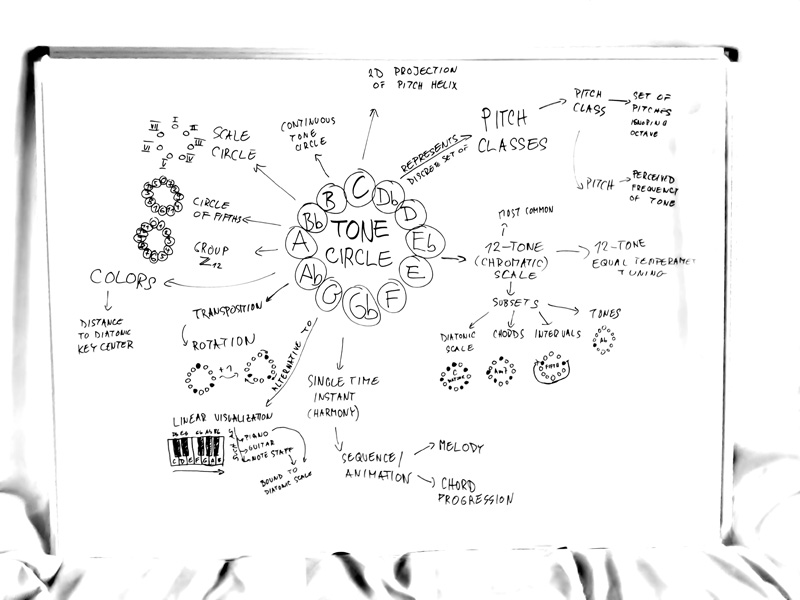 2D PROJECTION
OF PITCH HELIX
PITCH
CLASSES
PITCH
CLASS
SET OF
PITCHES
IGNORING
OCTAVE
PITCH
PERCEIVED
FREQUENCY
OF TONE
REPRESENTS
DISCRETE SET OF
CONTINUOUS
TONE
CIRCLE
SCALE
CIRCLE
I
II
III
V
VI
VII
CIRCLE
OF FIFTHS
GROUP
Z12
COLORS
DISTANCE
TO DIATONIC
KEY CENTER
TONE
CIRCLE
C
Db
D
Eb
E
F
Gb
G
Ab
A
Bb
B
MOST COMMON
12-TONE
(CHROMATIC)
SCALE
12-TONE
EQUAL TEMPERAMET
TUNING
SUBSETS
DIATONIC
SCALE
CHORDS
INTERVALS
TONES
C
Am7
Ab
TRANSPOSITION
ROTATION
+1
ALTERNATIVE TO
LINEAR VISUALIZATION
C D E F G A B
SUCH AS
PIANO
GUITAR
NOTE STAFF
BOUND TO
DIATONIC SCALE
SINGLE TIME
INSTANT
(HARMONY)
SEQUENCE/
ANIMATION
MELODY
CHORD
PROGRESSION